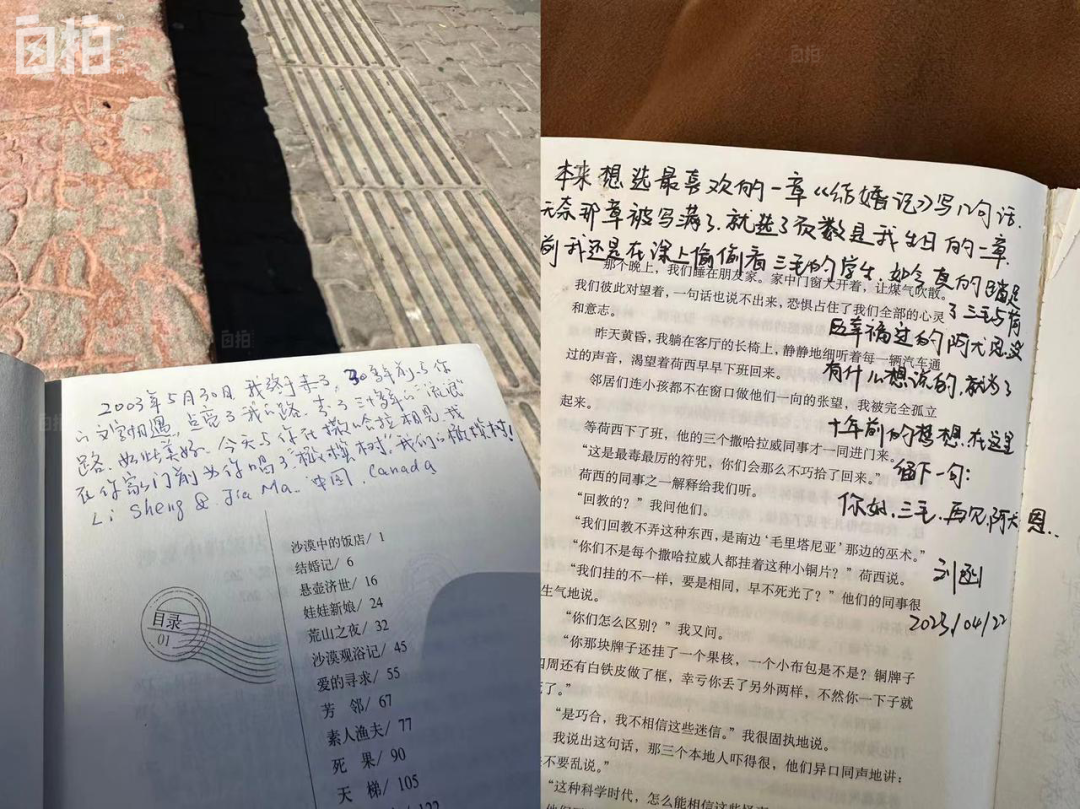 自拍
2003年5月30日 我终于来了，30年前与你
的文字相遇，点亮了我的路，走了三十年的“流浪
路”，如此美好。今天与你在撒哈拉相见，我
在你家门前为你唱了“橄榄树”，我们的橄榄树！
Li Sheng & Jia Ma. 中国. Canada
目录
01
沙漠中的饭店/ 1
结婚记/ 6
悬壶济世/ 16
娃娃新娘/ 24
荒山之夜/ 32
沙漠观浴记/ 45
爱的寻求/ 55
芳 邻/ 67
素人渔夫/ 77
死 果/ 90
天 梯/ 105
本来想选最喜欢的一章《结婚记》写几句话.
无奈那章被写满了.就选了页数是我生日的一章.
前我还是在课上偷偷看三毛的学生.如今真的踏足
了三毛与荷
西幸福过的阿尤恩.没
有什么想说的.就为了
十年前的梦想.在这里
留下一句：
你好.三毛.再见.阿尤恩..
2023/04/22
那个晚上，我们睡在朋友家。家中门窗大开着，让煤气吹散。
我们彼此对望着，一句话也说不出来，恐惧占住了我们全部的心灵
和意志。
昨天黄昏，我躺在客厅的长椅上，静静地细听着每一辆汽车通
过的声音，渴望着荷西早早下班回来。
邻居们连小孩都不在窗口做他们一向的张望，我被完全孤立
起来。
等荷西下了班，他的三个撒哈拉威同事才一同进门来。
“这是最毒最厉的符咒，你们会那么不巧拾了回来。”
荷西的同事之一解释给我们听。
“回教的？”我问他们。
“我们回教不弄这种东西，是南边‘毛里塔尼亚’那边的巫术。”
“你们不是每个撒哈拉威人都挂着这种小铜片？”荷西说。
“我们挂的不一样，要是相同，早不死光了？”他们的同事很
生气地说。
“你们怎么区别？”我又问。
“你那块牌子还挂了一个果核，一个小布包是不是？铜牌子
四周还有白铁皮做了框，幸亏你丢了另外两样，不然你一下子就
死了。”
“是巧合，我不相信这些迷信。”我很固执地说。
我说出这句话，那三个本地人吓得很，他们异口同声地讲：
不要乱说。”
“这种科学时代，怎么能相信这些怪